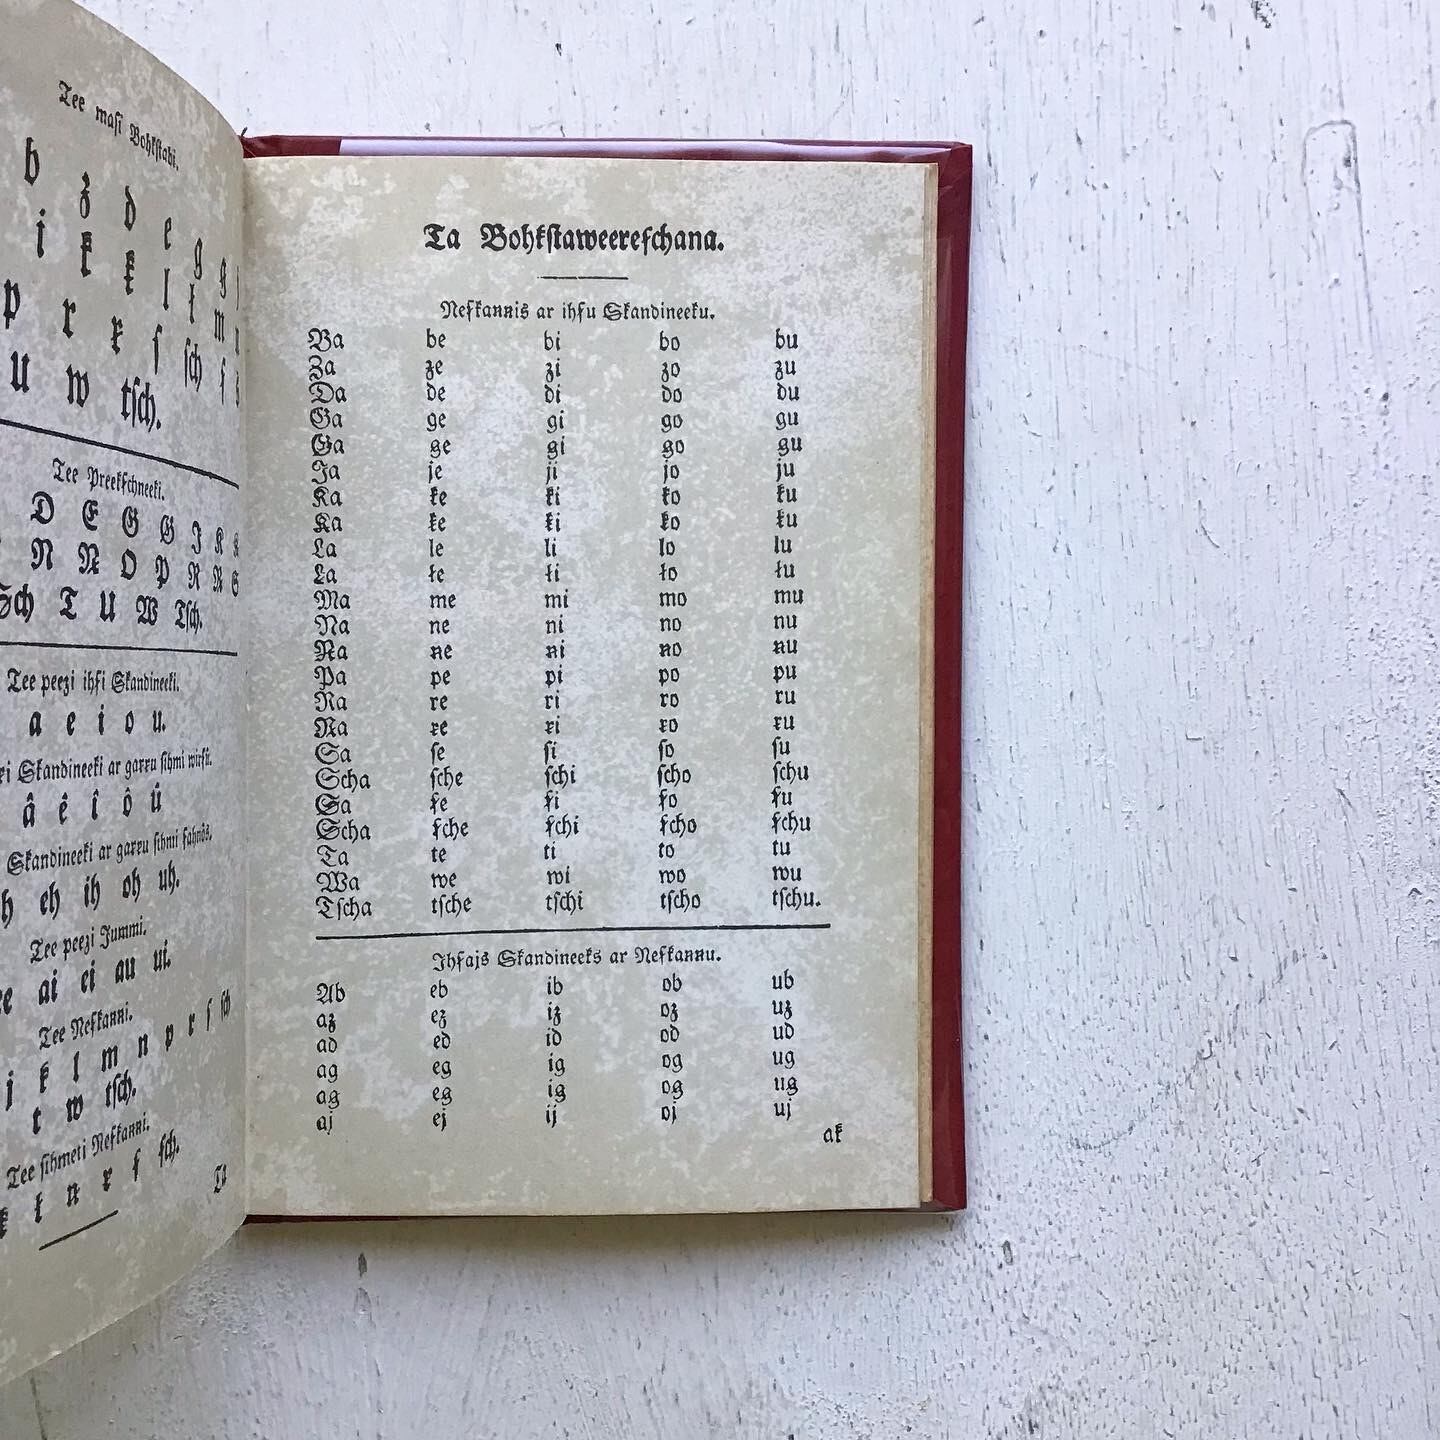 Tee masi Bohkstabi.
b z d e g ǥ
i k ꞣ l ł m
p r ꞧ ſ ſch ẜ
u w tſch.
Tee Preekẜchneeki.
D E G Ǥ J K
N Ꞥ O P R Ꞧ S
Sch T U W Tſch.
Tee peezi ihſi Skandineeki.
a e i o u.
Skandineeki ar garꞧu ſihmi wirſû.
â ê î ô û
Skandineeki ar garꞧu ſihmi ẜahnôs.
eh ih oh uh.
Tee peezi Jummi.
ee ai ei au ui.
Tee Neẜkanꞥi.
j k l m n p r ſ ẜ ſch
t w tſch.
Tee ſihmeti Neẜkanꞥi.
ꞣ ł ꞥ ꞧ ẜ ẜch.
Ta
Ta Bohkſtaweereẜchana.
Neẜkanꞥis ar ihẜu Skandineeku.
Ba be bi bo bu
Za ze zi zo zu
Da de di do du
Ga ge gi go gu
Ǥa ǥe ǥi ǥo ǥu
Ja je ji jo ju
Ka ke ki ko ku
Ꞣa ꞣe ꞣi ꞣo ꞣu
La le li lo lu
Ła łe łi ło łu
Ma me mi mo mu
Na ne ni no nu
Ꞥa ꞥe ꞥi ꞥo ꞥu
Pa pe pi po pu
Ra re ri ro ru
Ꞧa ꞧe ꞧi ꞧo ꞧu
Sa ſe ſi ſo ſu
Scha ſche ſchi ſcho ſchu
Ꞩa ẜe ẜi ẜo ẜu
Ꞩcha ẜche ẜchi ẜcho ẜchu
Ta te ti to tu
Wa we wi wo wu
Tſcha tſche tſchi tſcho tſchu.
Ihẜajs Skandineeks ar Neẜkanꞥu.
Ab eb ib ob ub
az ez iz oz uz
ad ed id od ud
ag eg ig og ug
aǥ eǥ iǥ oǥ uǥ
aj ej ij oj uj
ak